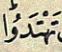 تَهْتَدُوْاؕ